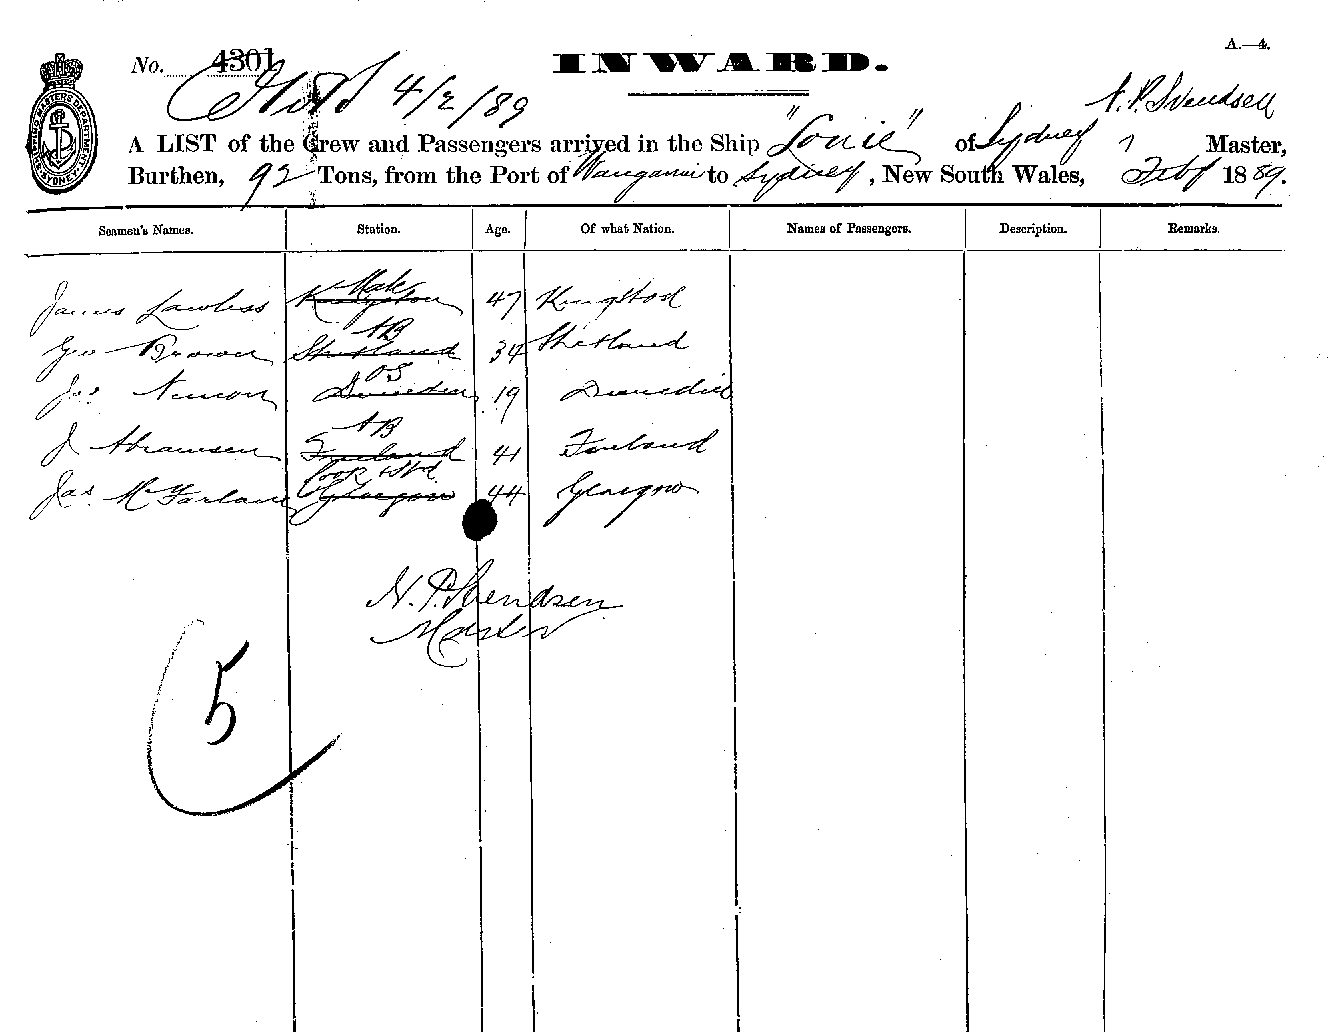 A.—4.
No. 4301
INWARD.
4/2/89
N. P. Svendsen
A LIST of the Crew and Passengers arrived in the Ship "Louie" of Sydney Master,
Burthen, 92 Tons, from the Port of Wanganui to Sydney, New South Wales, Feby 1889.
Seamen's Names. Station. Age. Of what Nation. Names of Passengers. Description. Remarks.
James Lawless Kingston Mate 47
Geo Brown Shetland AB 34 Shetland
Dunedin OS 19 Dunedin
J AB 41
Jas McFarlane Glasgow Cook & Std 44 Glasgow
N. P. Svendsen
Master
5